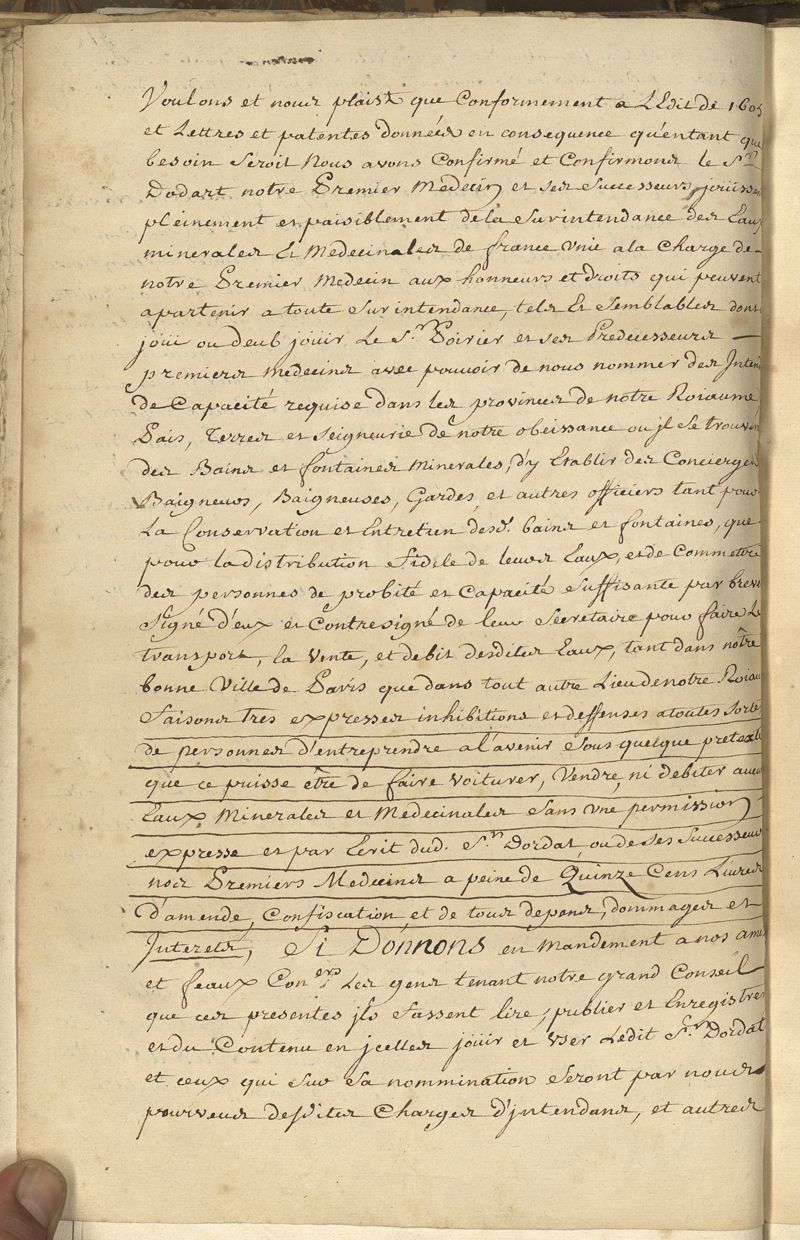 Voulons et nous plaist que Conformement a L'Edit de 1605
et Lettres et patentes données en consequence qu'entant que
besoin Seroit Nous avons Confirmé et Confirmons le Sr.
Dodart notre Premier Medecin et ses Successeurs joüissen
pleinement et paisiblement de la Surintendance des Eaux
minerales Et Medecinales de france Vnie a la Charge de
notre Premier Medecin aux honneurs et droits qui peuvent
apartenir a toute Surintendance, tels Et Semblables dont
joüi ou deub joüir Le Sr. Poirier et ses Predecesseurs —
premiers medecins avec pouvoir de nous nommer des Inten
de Capacité requise dans les provinces de notre Roiaume,
Païs, Terres et Seigneurie de notre obeissance ou jl se trouven
des Bains et fontaines Minerales, d'y Etablir des Concierges
Baigneurs, Baigneuses, Gardes, et autres officiers tant pour
La Conservation et Entretien desd. bains et fontaines, que
pour la distribution fidele de leurs Eaux, et de Commettre
des personnes de probité et Capacité Suffisante par brev
Signé d'eux et Contresigné de leur Secretaire pour faire Le
transport, la Vente, et debit desdites Eaux, tant dans nôtre
bonne Ville de Paris que dans tout autre Lieu de notre Roiau
faisons tres expresses inhibitions et deffenses a toutes Sortes
de personnes d'entreprendre a l'avenir Sous quelque pretexte
que ce puisse être de faire Voiturer, Vendre, ni debiter aucu
Eaux Minerales et Medecinales Sans Vne permission
expresse et par Ecrit dud. Sr. Dordat, ou de Ses Successeurs
nos Premiers Medecins a peine de Quinze Cens Livres
d'amende, Confiscation, et de tous depens, dommages et
Interets, Si Donnons en Mandement a nos ame
et feaux Coners. Les gens tenant notre grand Conseil
que ces presentes jls fassent lire, publier et Enregistrer
et du Contenu en jcelles joüir et Vser Ledit Sr. Dordat
et ceux qui sur sa nommination Seront par nous
pourveus desdites Charges d'jntendans, et autres